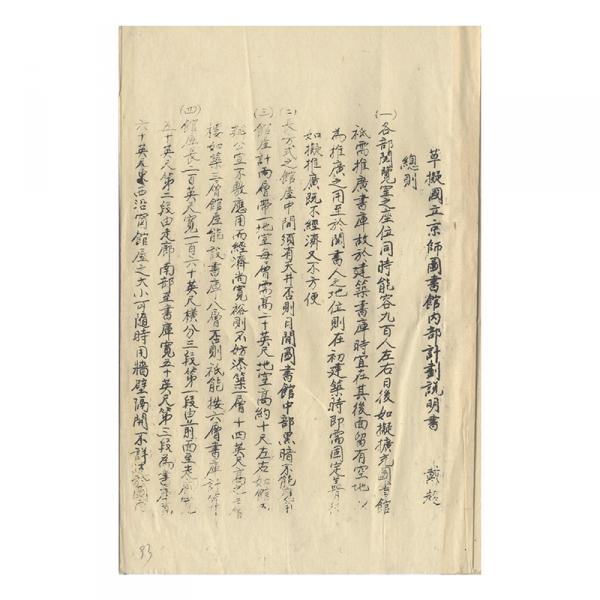 草擬國立京師圖書館內部計劃說明書　戴超
總則
(一)各部閱覽室之座位同時能容九百人左右日後如擬擴充圖書館
祇需推廣書庫故於建築書庫時宜在其後面留有空地以
為推廣之用至於閱書人之地位則在初建築時即需固定
如擬推廣既不經濟又不方便
(二)長方式之館屋中間須有天井否則日間圖書館中部黑暗不能
(三)館屋計兩層帶一地室每層需高二十英尺地室高約十尺左右如館中
辦公室不敷應用而經濟尚寬裕則不妨添築一層十四英尺高之
樓如築三層館屋能設書庫八層否則祇能按六層書庫計
(四)館屋長二百英尺寬一百六十英尺橫分三段第一段由前面至走廊
五十英尺第二段由走廊南部至書庫寬五十英尺第三段為書庫
六十英尺東西沿窗館屋之大小可隨時用牆壁隔開不詳
83